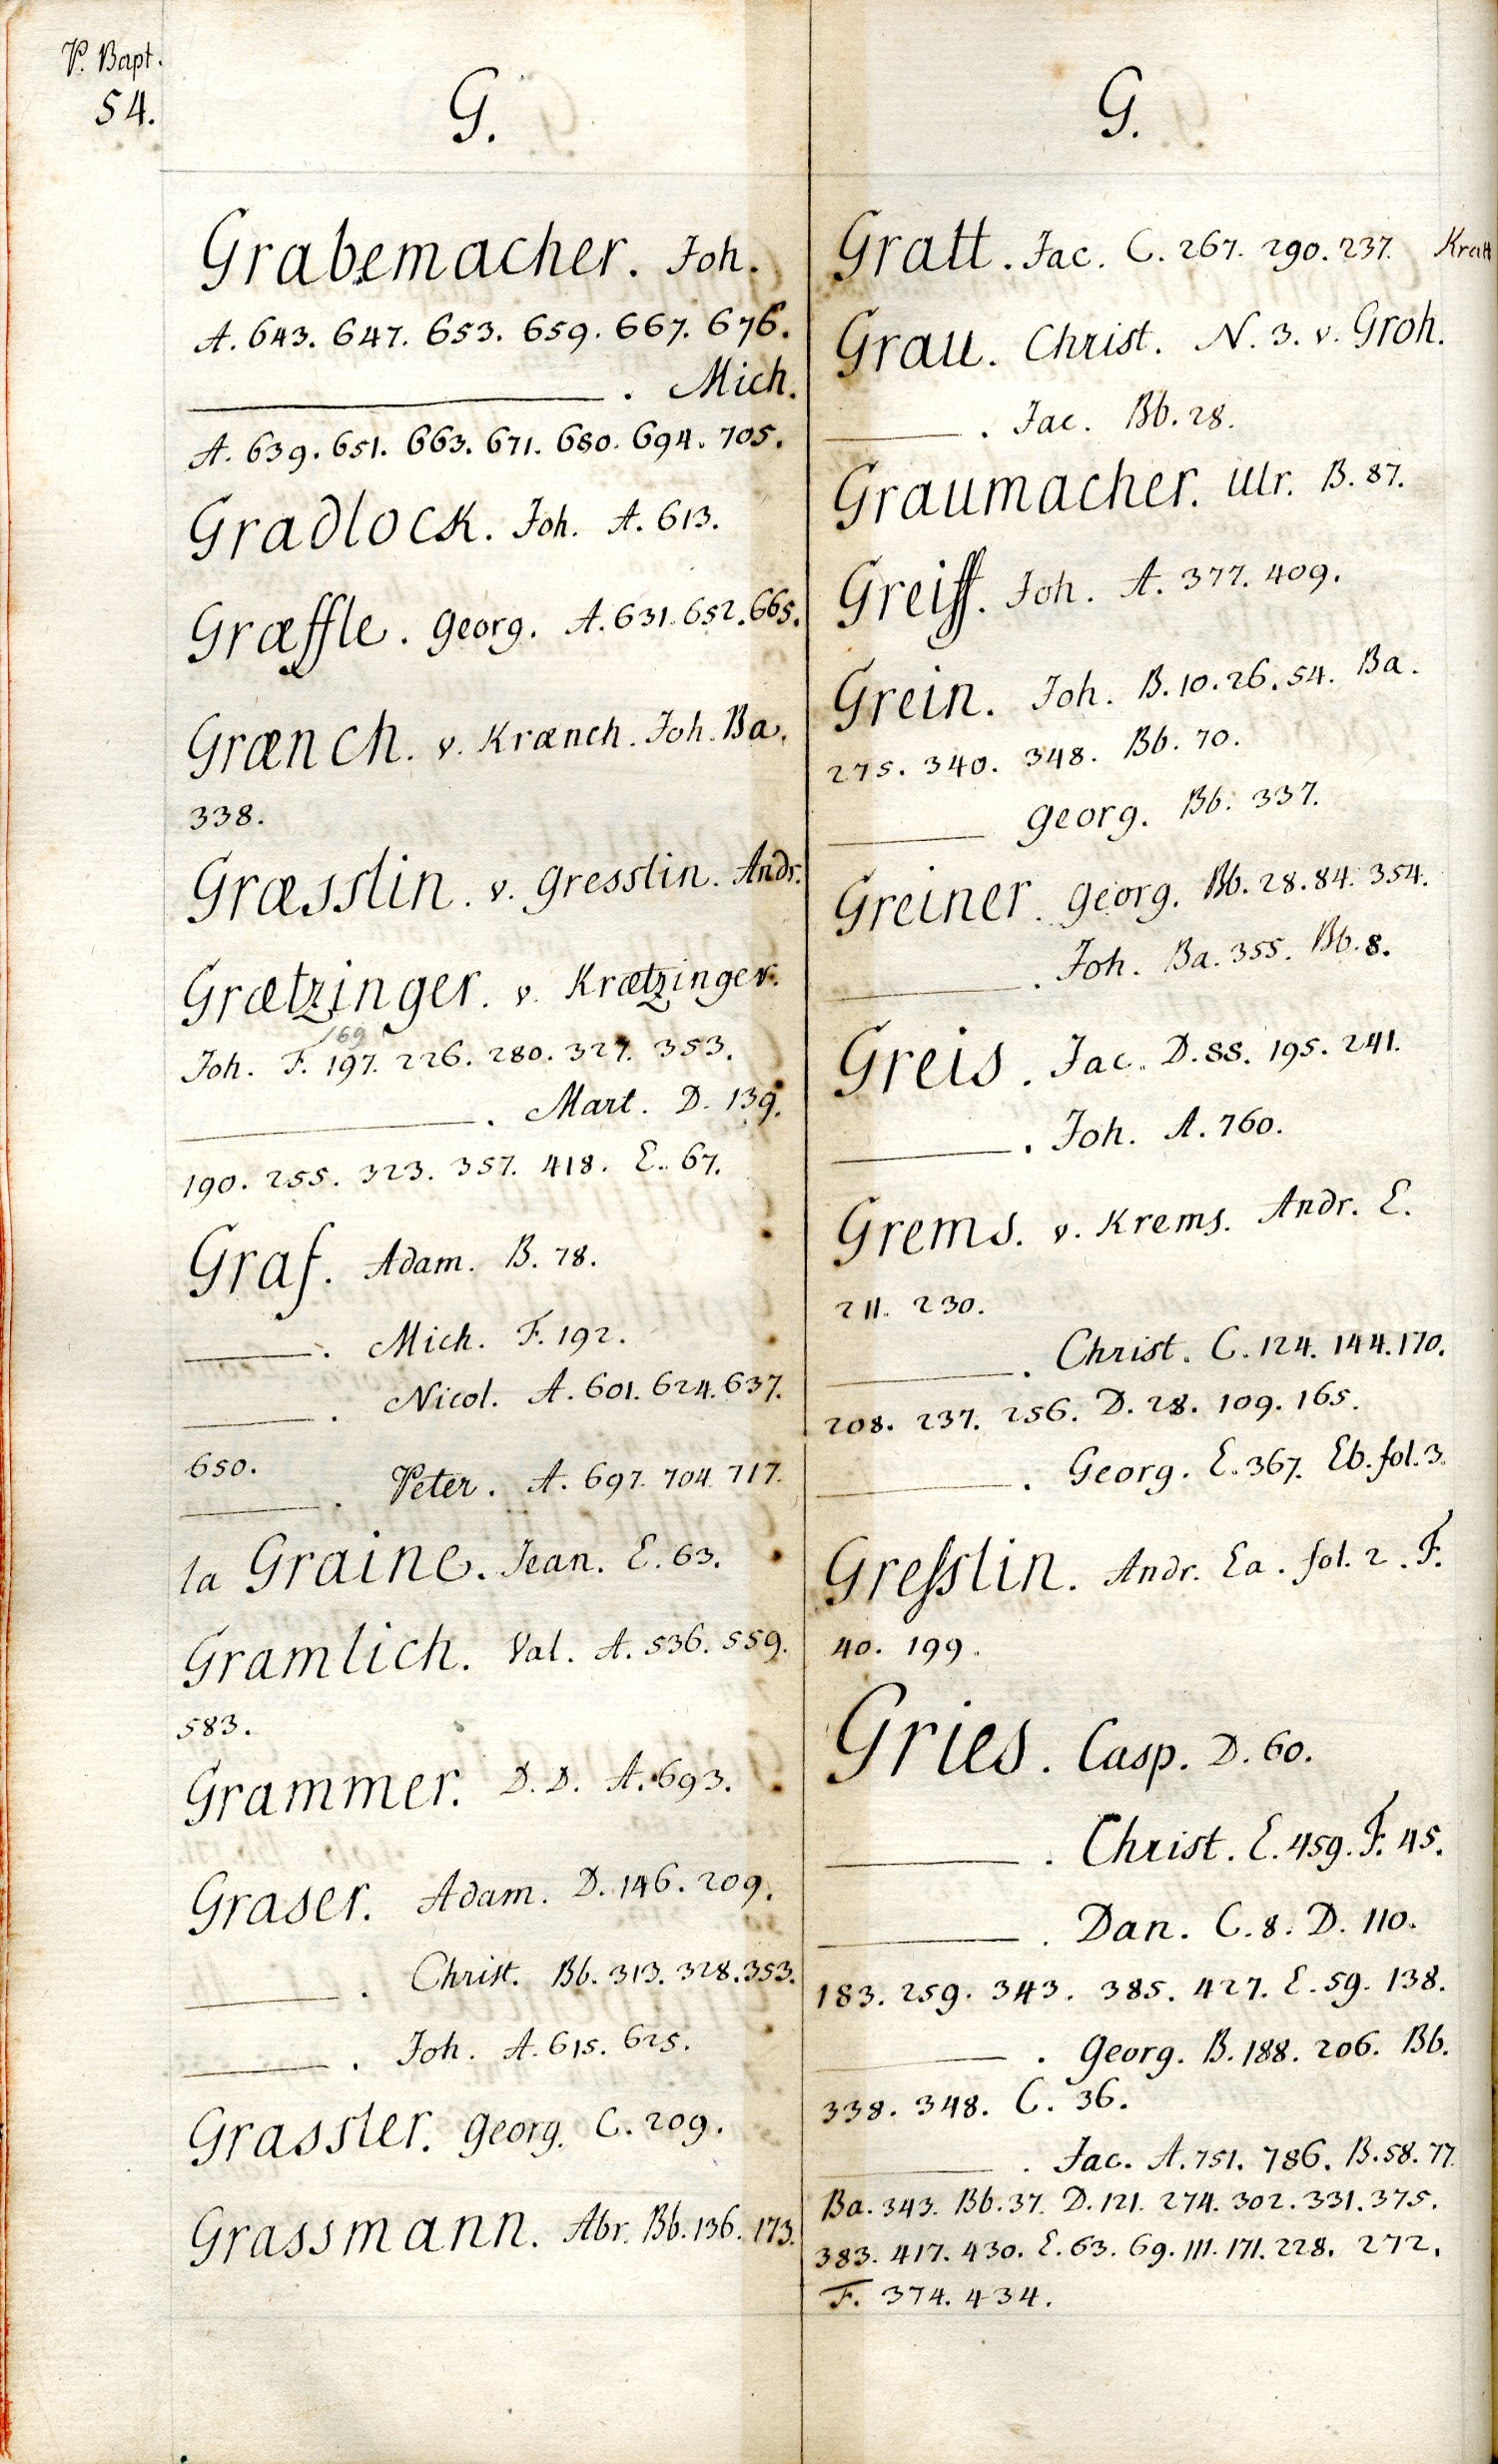 P. Bapt.
54.
G.
Grabemacher. Joh.
A. 643. 647. 653. 659. 667. 676.
. Mich.
A. 639. 651. 663. 671. 680. 694. 705.
Gradlock. Joh. A. 613.
Græffle. Georg. A. 631. 652. 665.
Grænch. v. Krænch. Joh. Ba.
338.
Græsslin. v. Gresslin. Andr.
Grætzinger. v. Krætzinger.
169
Joh. F. 197. 226. 280. 327. 353.
. Mart. D. 139.
190. 255. 323. 357. 418. E. 67.
Graf. Adam. B. 78.
. Mich. F. 192.
. Nicol. A. 601. 624. 637.
650.
. Peter. A. 697. 704. 717.
la Graine. Jean. E. 63.
Gramlich. Val. A. 536. 559.
583.
Grammer. D. D. A. 693.
Graser. Adam. D. 146. 209.
. Christ. Bb. 313. 328. 353.
. Joh. A. 615. 625.
Grassler. Georg. C. 209.
Grassmann. Abr. Bb. 136. 173.
G.
Gratt. Jac. C. 267. 290. 237. Kratt
Grau. Christ. N. 3. v. Groh.
. Jac. Bb. 28.
Graumacher. Ulr. B. 87.
Greiff. Joh. A. 377. 409.
Grein. Joh. B. 10. 26. 54. Ba.
275. 340. 348. Bb. 70.
Georg. Bb. 337.
Greiner. Georg. Bb. 28. 84. 354.
. Joh. Ba. 355. Bb. 8.
Greis. Jac. D. 88. 195. 241.
. Joh. A. 760.
Grems. v. Krems. Andr. E.
211. 230.
. Christ. C. 124. 144. 170.
208. 237. 256. D. 28. 109. 165.
. Georg. E. 367. Eb. fol. 3.
Gresslin. Andr. Ea. fol. 2. F.
40. 199.
Gries. Casp. D. 60.
. Christ. E. 459. F. 45.
. Dan. C. 8. D. 110.
183. 259. 343. 385. 427. E. 59. 138.
. Georg. B. 188. 206. Bb.
338. 348. C. 36.
. Jac. A. 751. 786. B. 58. 77.
Ba. 343. Bb. 37. D. 121. 274. 302. 331. 375.
383. 417. 430. E. 63. 69. 111. 171. 228. 272.
F. 374. 434.